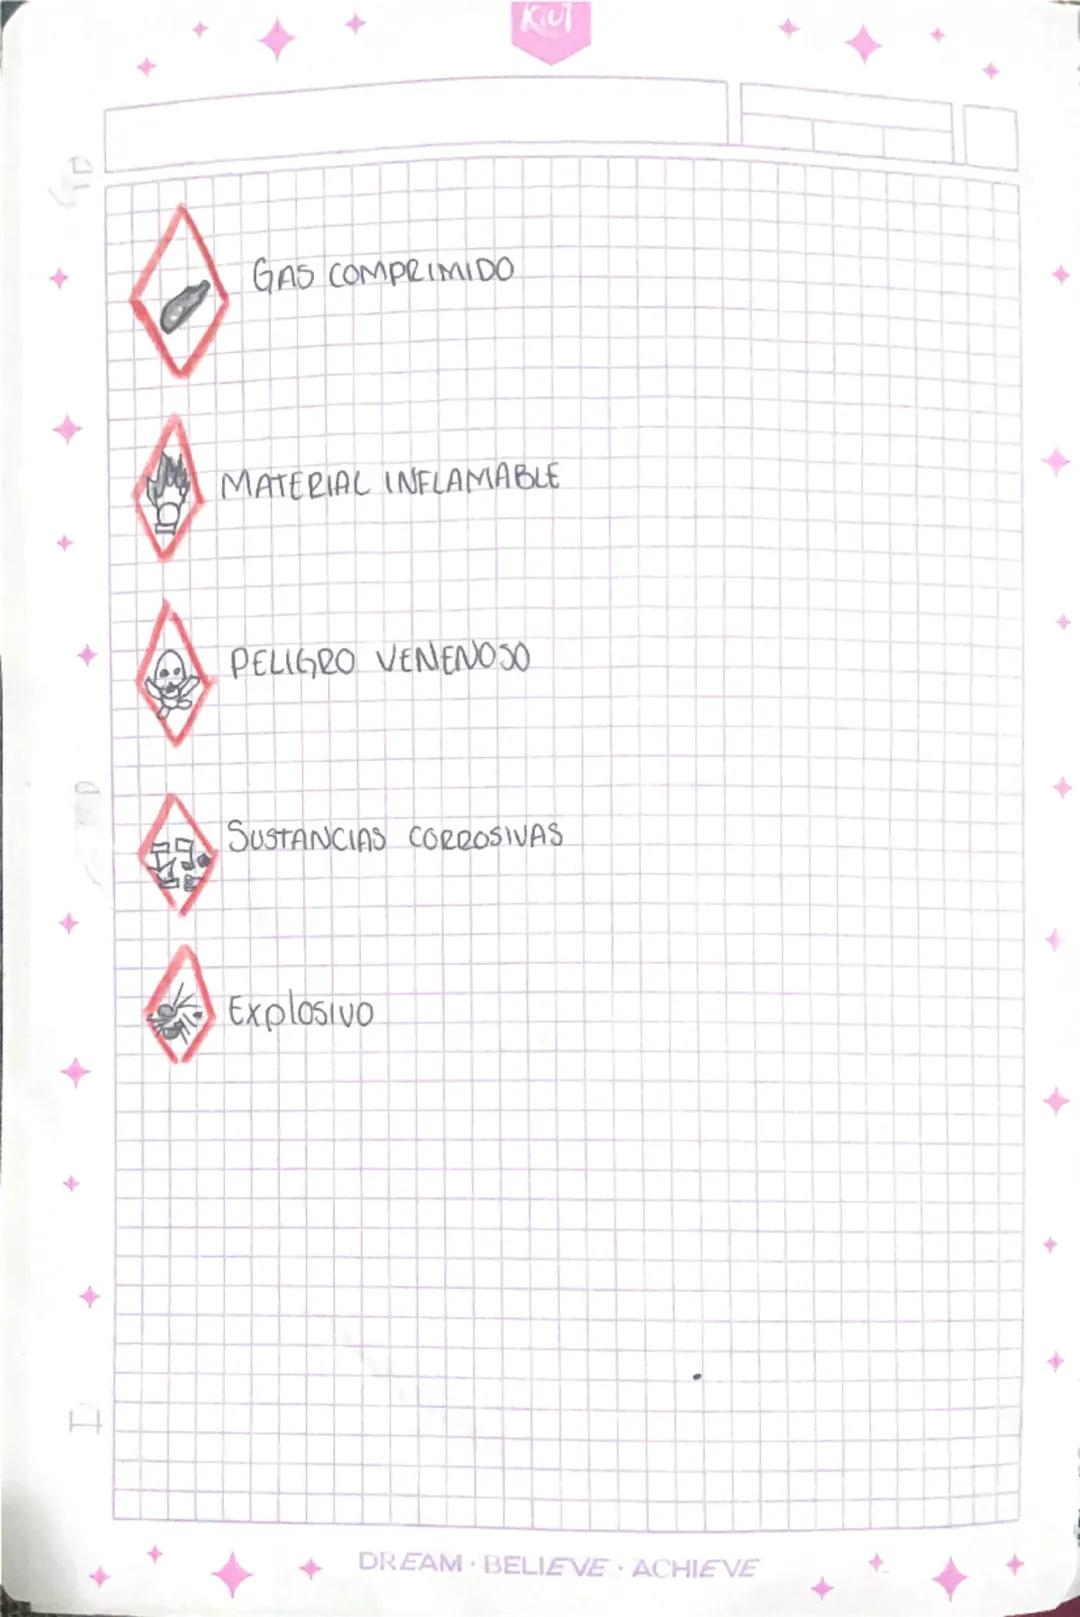 Kiut
GAS COMPRIMIDO
MATERIAL INFLAMABLE
PELIGRO VENENOSO
SUSTANCIAS CORROSIVAS
Explosivo
DREAM · BELIEVE · ACHIEVE